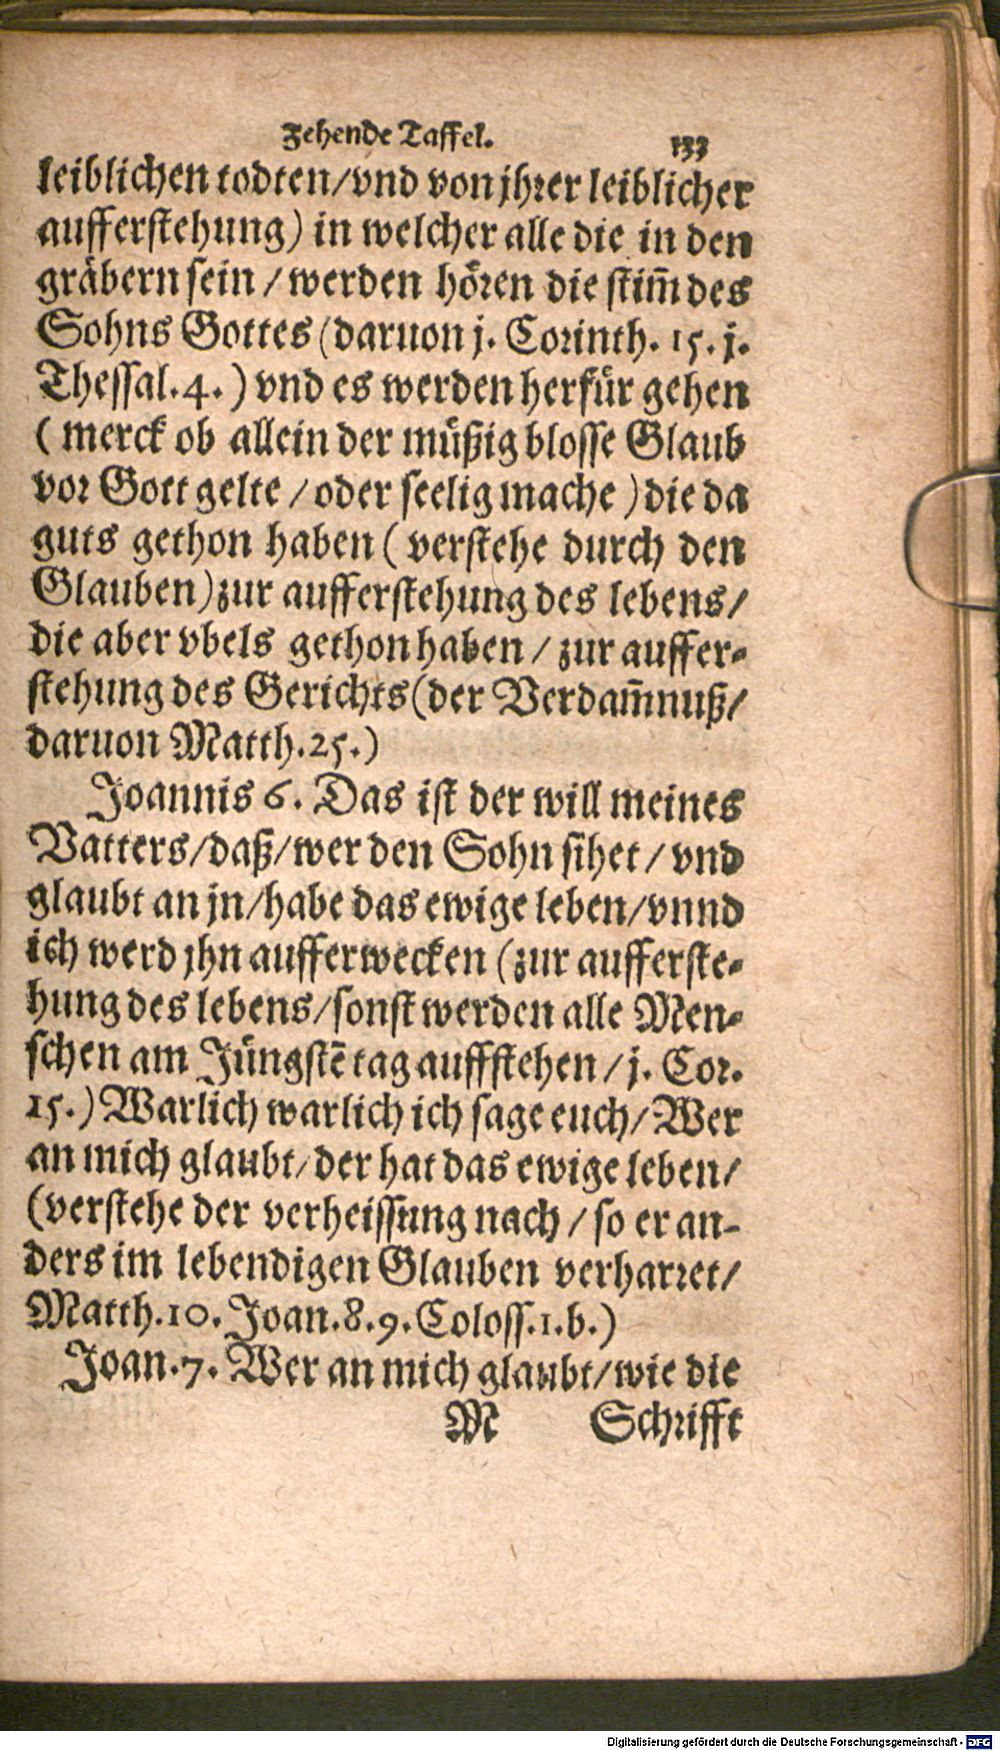 Zehende Taffel. 133
leiblichen todten/vnd von jhrer leiblicher
aufferstehung) in welcher alle die in den
gräbern sein / werden hören die stim̃ des
Sohns Gottes (daruon j. Corinth. 15. j.
Thessal. 4. ) vnd es werden herfür gehen
( merck ob allein der müßig blosse Glaub
vor Gott gelte / oder seelig mache ) die da
guts gethon haben ( verstehe durch den
Glauben) zur aufferstehung des lebens/
die aber vbels gethon haben / zur auffer-
stehung des Gerichts (der Verdam̃nuß/
daruon Matth. 25.)
Joannis 6. Das ist der will meines
Vatters/daß/wer den Sohn sihet / vnd
glaubt an jn/habe das ewige leben/vnnd
ich werd jhn aufferwecken (zur aufferste-
hung des lebens/sonst werden alle Men-
schen am Jüngstẽ tag auffstehen / j. Cor.
15.) Warlich warlich ich sage euch/Wer
an mich glaubt/der hat das ewige leben/
(verstehe der verheissung nach / so er an-
ders im lebendigen Glauben verharret/
Matth. 10. Joan. 8. 9. Coloss. 1. b.)
Joan. 7. Wer an mich glaubt/wie die
M Schrifft
Digitalisierung gefördert durch die Deutsche Forschungsgemeinschaft - DFG